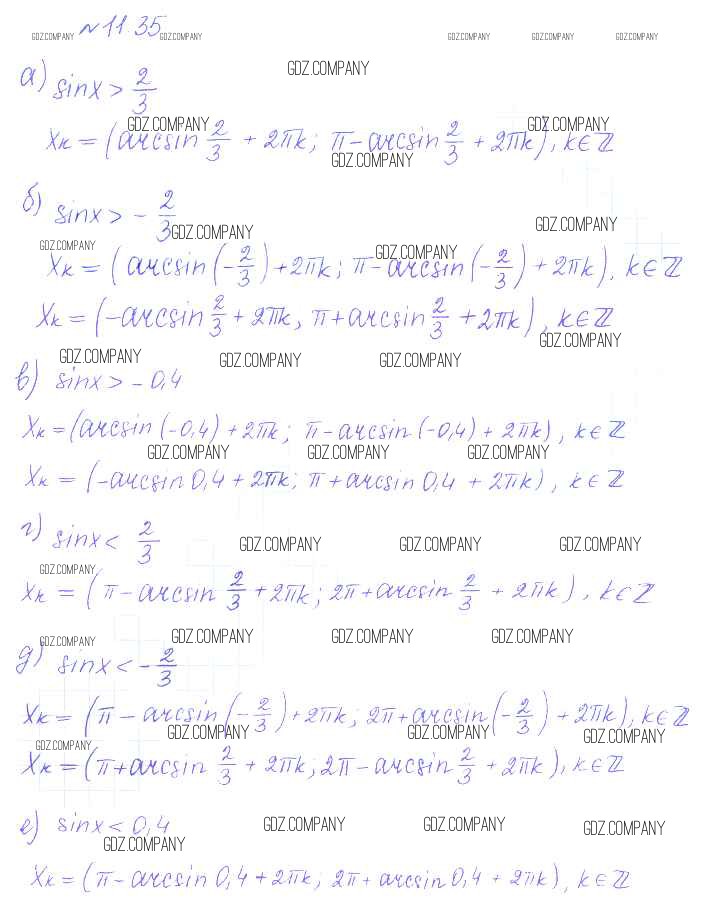 №11.35
GDZ.COMPANY GDZ.COMPANY GDZ.COMPANY GDZ.COMPANY GDZ.COMPANY
а) sinx > 2/3
GDZ.COMPANY
GDZ.COMPANY GDZ.COMPANY
xк = (arcsin 2/3 + 2πk; π - arcsin 2/3 + 2πk), k∈ℤ
GDZ.COMPANY
б) sinx > - 2/3
GDZ.COMPANY GDZ.COMPANY
GDZ.COMPANY GDZ.COMPANY
xк = (arcsin(-2/3) + 2πk; π - arcsin(-2/3) + 2πk), k∈ℤ
xк = (-arcsin 2/3 + 2πk, π + arcsin 2/3 + 2πk), k∈ℤ
GDZ.COMPANY
GDZ.COMPANY GDZ.COMPANY GDZ.COMPANY
в) sinx > - 0,4
xк = (arcsin(-0,4) + 2πk; π - arcsin(-0,4) + 2πk), k∈ℤ
GDZ.COMPANY GDZ.COMPANY GDZ.COMPANY
xк = (-arcsin 0,4 + 2πk; π + arcsin 0,4 + 2πk), k∈ℤ
г) sinx < 2/3
GDZ.COMPANY GDZ.COMPANY GDZ.COMPANY
GDZ.COMPANY
xк = (π - arcsin 2/3 + 2πk; 2π + arcsin 2/3 + 2πk), k∈ℤ
GDZ.COMPANY GDZ.COMPANY GDZ.COMPANY GDZ.COMPANY
д) sinx < - 2/3
xк = (π - arcsin(-2/3) + 2πk; 2π + arcsin(-2/3) + 2πk), k∈ℤ
GDZ.COMPANY GDZ.COMPANY GDZ.COMPANY
GDZ.COMPANY
xк = (π + arcsin 2/3 + 2πk; 2π - arcsin 2/3 + 2πk), k∈ℤ
е) sinx < 0,4
GDZ.COMPANY GDZ.COMPANY GDZ.COMPANY
GDZ.COMPANY
xк = (π - arcsin 0,4 + 2πk; 2π + arcsin 0,4 + 2πk), k∈ℤ